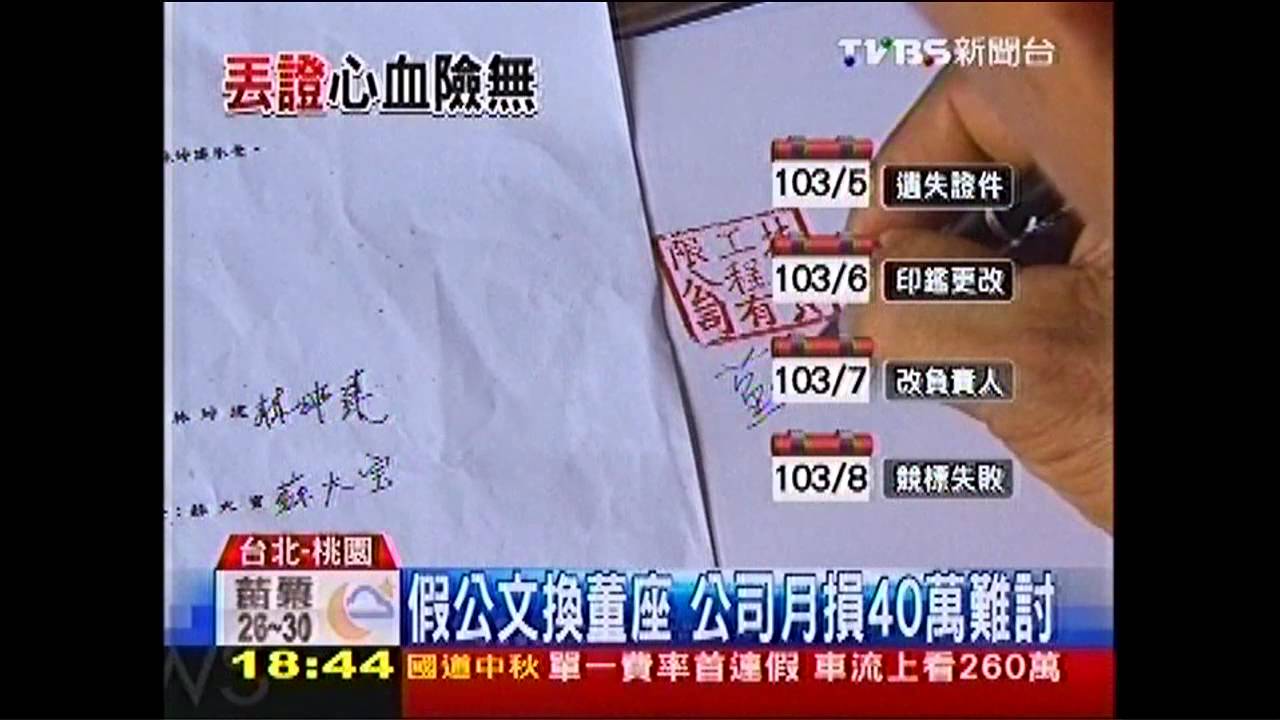 丟證心血險無
TVBS新聞台
103/5 遺失證件
103/6 印鑑更改
103/7 改負責人
103/8 競標失敗
限工
公程
司有
董
林坤
蘇大寶 蘇大宝
台北-桃園
苗栗
26~30
假公文換董座 公司月損40萬難討
18:44 國道中秋 單一費率首連假 車流上看260萬